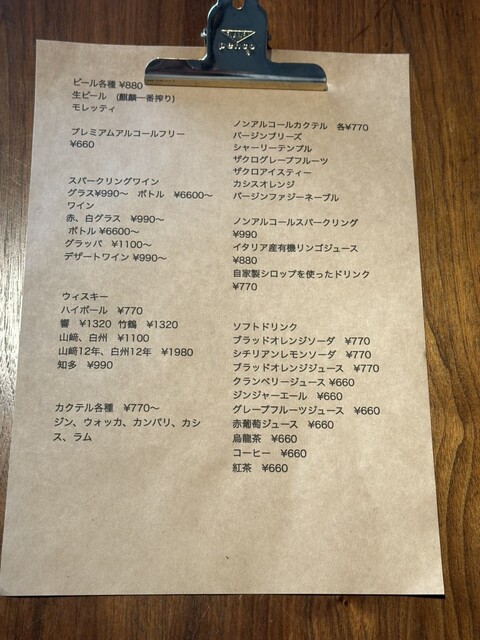 penco
ビール各種 ¥880
生ビール　(麒麟一番搾り)
モレッティ
プレミアムアルコールフリー
¥660
スパークリングワイン
グラス¥990～　ボトル　¥6600～
ワイン
赤、白グラス　¥990～
ボトル ¥6600～
グラッパ　¥1100～
デザートワイン ¥990～
ウィスキー
ハイボール　¥770
響　¥1320  竹鶴　¥1320
山﨑、白州　¥1100
山﨑12年、白州12年　¥1980
知多　¥990
カクテル各種　¥770～
ジン、ウォッカ、カンパリ、カシ
ス、ラム
ノンアルコールカクテル　各¥770
バージンブリーズ
シャーリーテンプル
ザクログレープフルーツ
ザクロアイスティー
カシスオレンジ
バージンファジーネーブル
ノンアルコールスパークリング
¥990
イタリア産有機リンゴジュース
¥880
自家製シロップを使ったドリンク
¥770
ソフトドリンク
ブラッドオレンジソーダ　¥770
シチリアンレモンソーダ　¥770
ブラッドオレンジジュース　¥770
クランベリージュース ¥660
ジンジャーエール　¥660
グレープフルーツジュース　¥660
赤葡萄ジュース　¥660
烏龍茶　¥660
コーヒー　¥660
紅茶　¥660